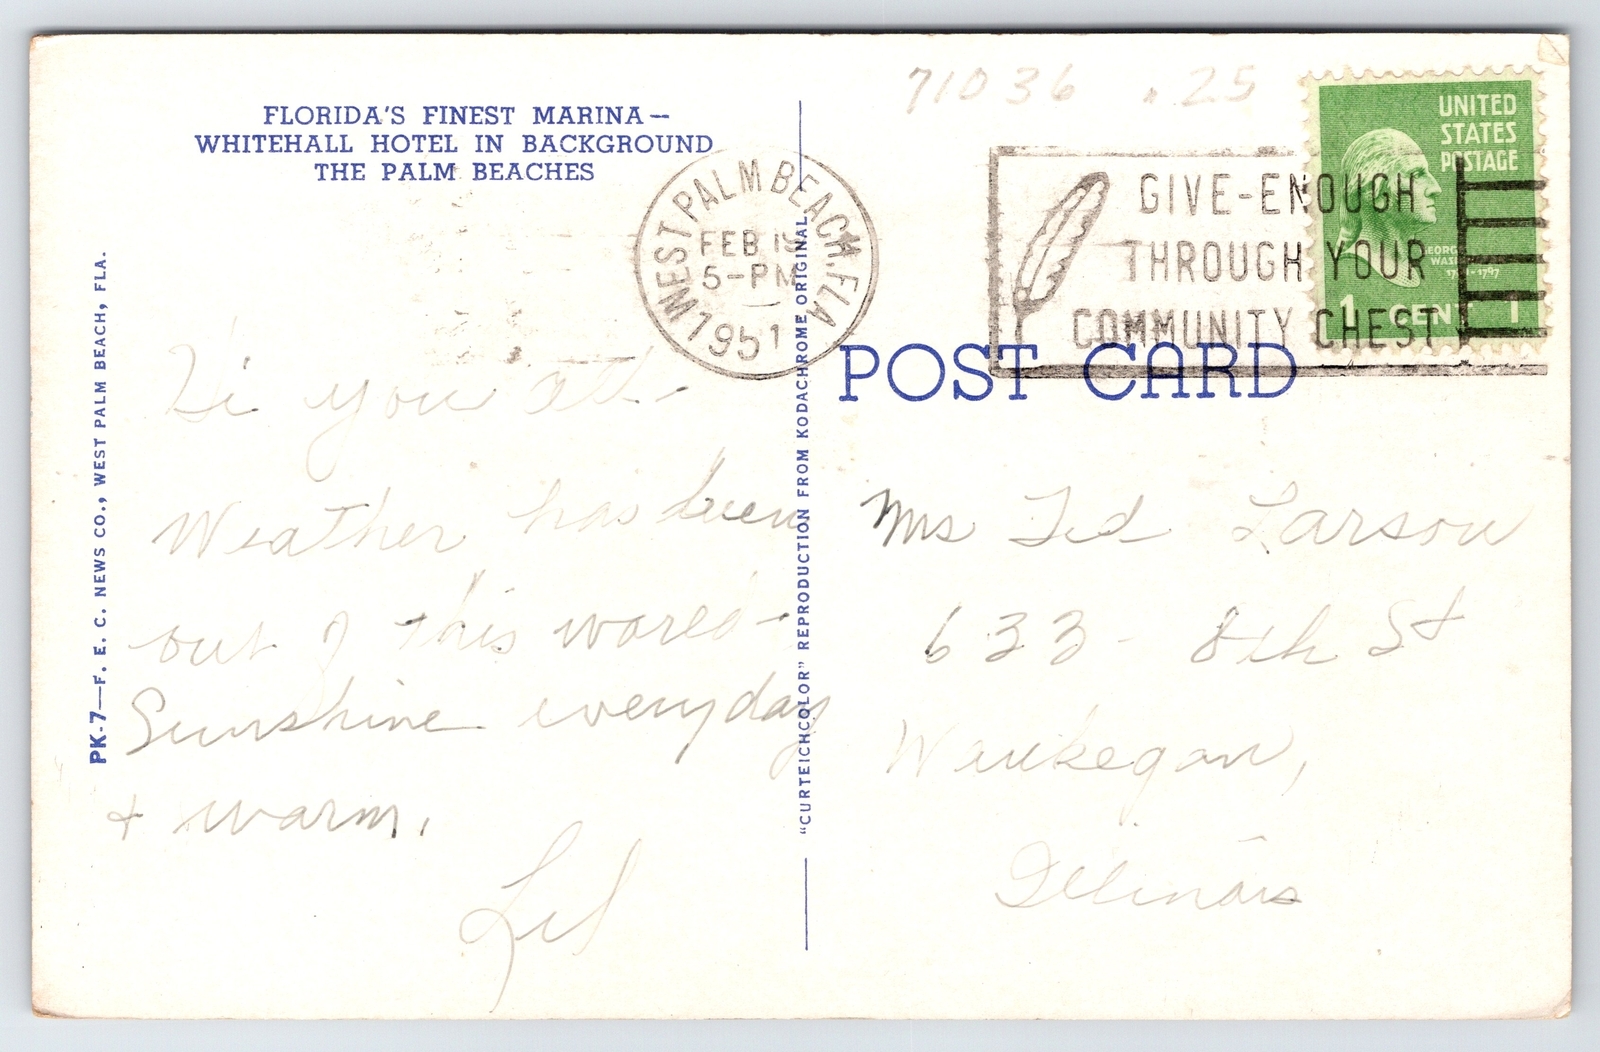 71036 .25
FLORIDA'S FINEST MARINA—
WHITEHALL HOTEL IN BACKGROUND
THE PALM BEACHES
WEST PALM BEACH, FLA.
FEB 19
5-PM
1951
GIVE-ENOUGH
THROUGH YOUR
COMMUNITY CHEST
UNITED
STATES
POSTAGE
1 CENT 1
POST CARD
PK-7—F. E. C. NEWS CO., WEST PALM BEACH, FLA.
"CURTEICHCOLOR" REPRODUCTION FROM KODACHROME ORIGINAL
Hi you all-
Weather has been
out of this world-
Sunshine everyday
+ warm.
Lil
Mrs Ted Larson
633 - 8th St
Waukegan,
Illinois